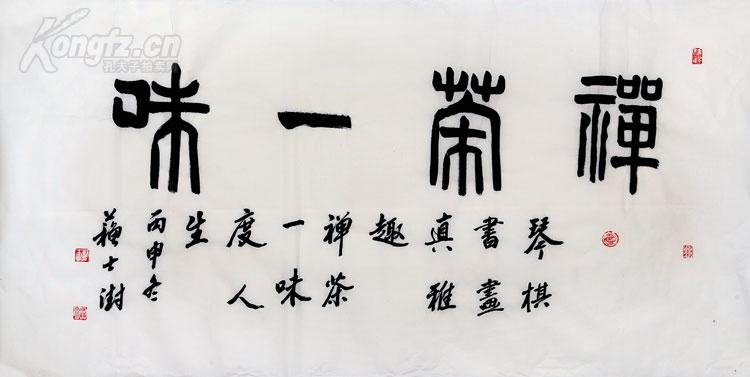 禪茶一味
琴棋
書畫
真雅
趣
禅茶
一味
度人
生
丙申冬
蘇士澍
Kongfz.cn
孔夫子拍卖网